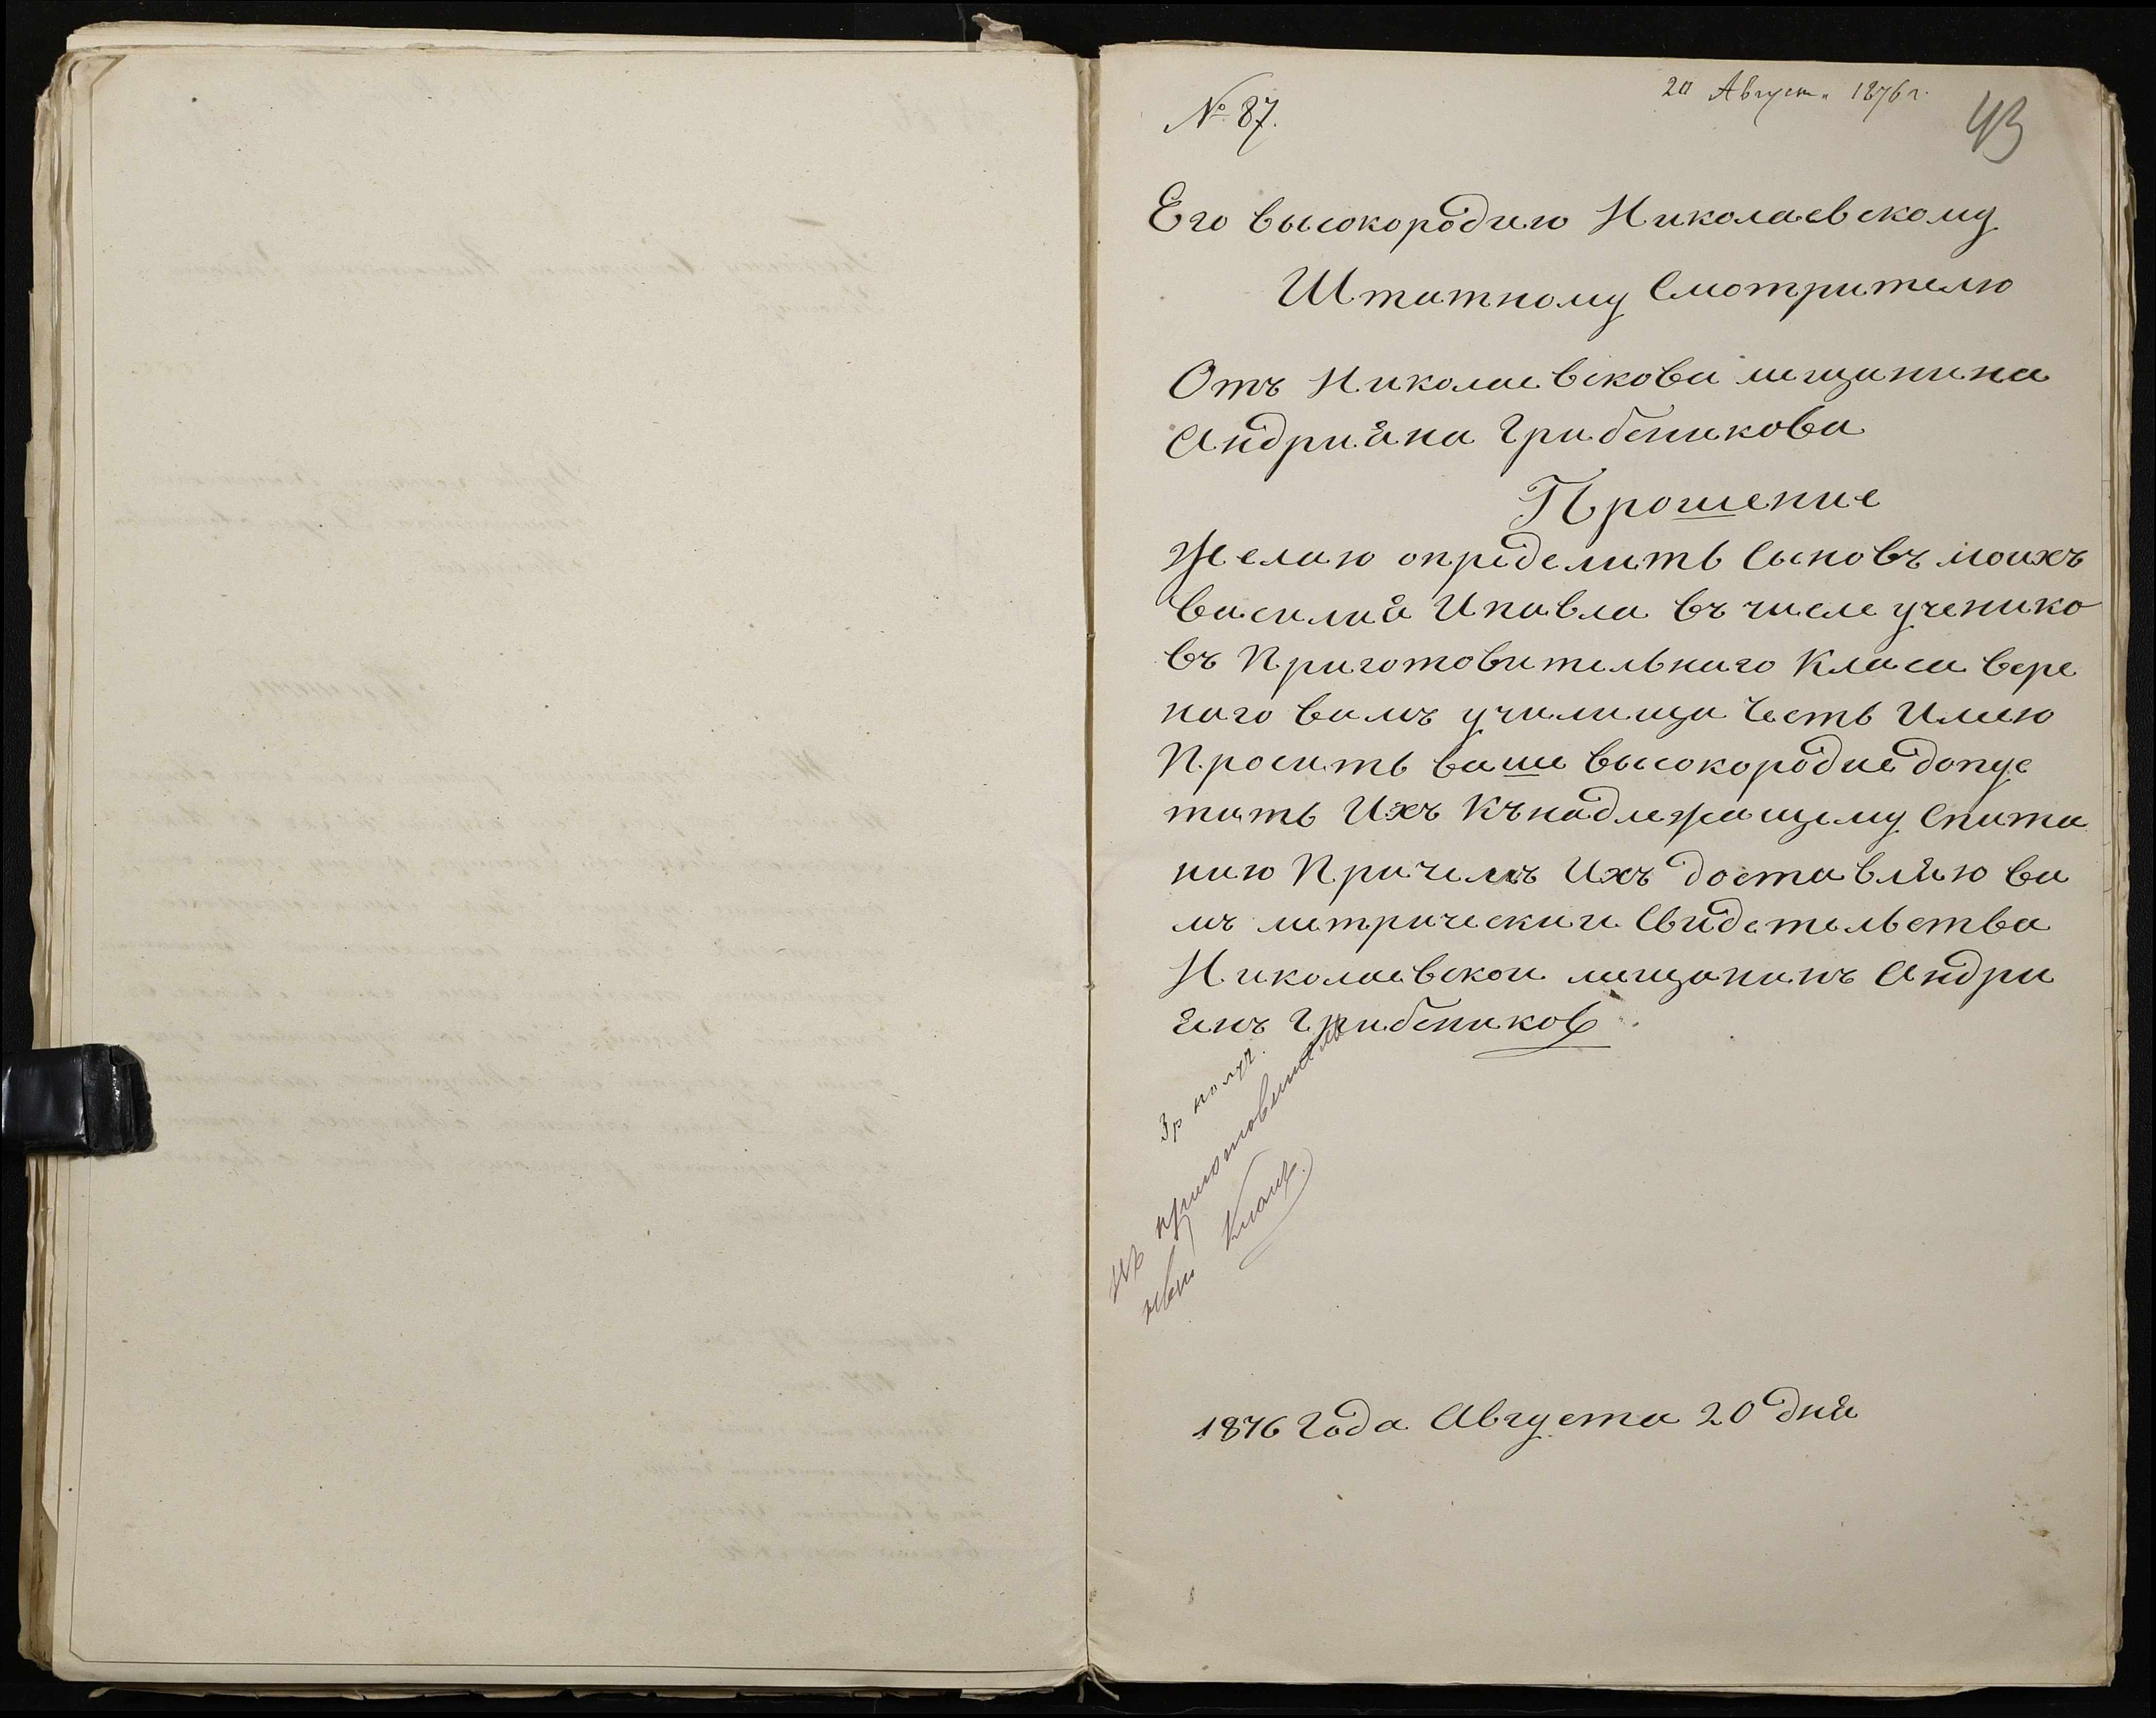 № 87.
20 Августа 1876 г.
43
Его высокородию Николаевскому
Штатному Смотрителю
Отъ Николаевскова мещанина
Андрияна Грибеникова
Прошение
Желаю определить Сыновъ моихъ
василия Ипавла въ числе ученико
въ Приготовительнаго Класа вере
наго вамъ училища Честь Имею
Просить ваше высокородие допус
тить Ихъ Кънадлежащему Спита
нию Причемъ Ихъ доставляю ва
мъ метрическии Свидетельства
Николаевскои мещанинъ Андри
янъ Грибеников
3 р получ.
Въ приготовительн
1876 Года Августа 20 дня